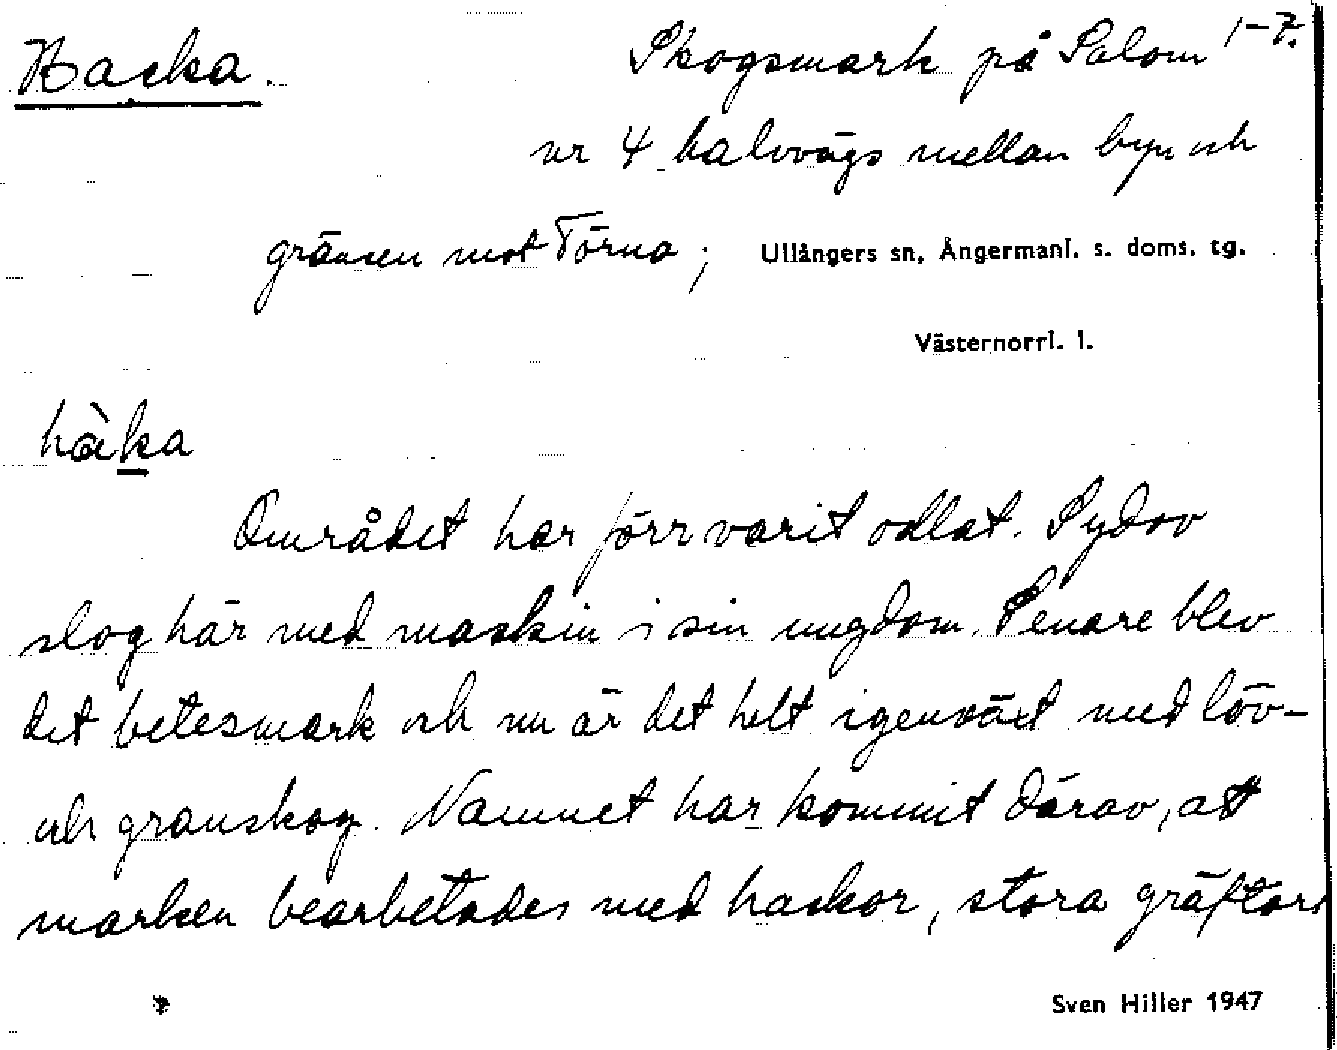 Hacka.
Skogsmark på Salom 1-7.
nr 4 halvvägs mellan byn och
gränsen mot Törna; Ullångers sn, Ångermanl. s. doms. tg.
Västernorrl. l.
hàka
Området har förr varit odlat. Sydov
slog här med maskin i sin ungdom. Senare blev
det betesmark och nu är det helt igenväxt med löv-
och granskog. Namnet har kommit därav, att
marken bearbetades med hackor, stora gräftor.
Sven Hiller 1947